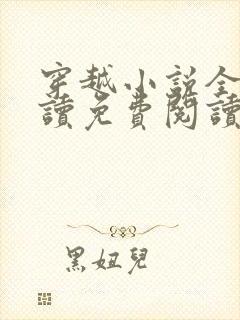 穿越小說全
讀免費閱讀
黑妞兒